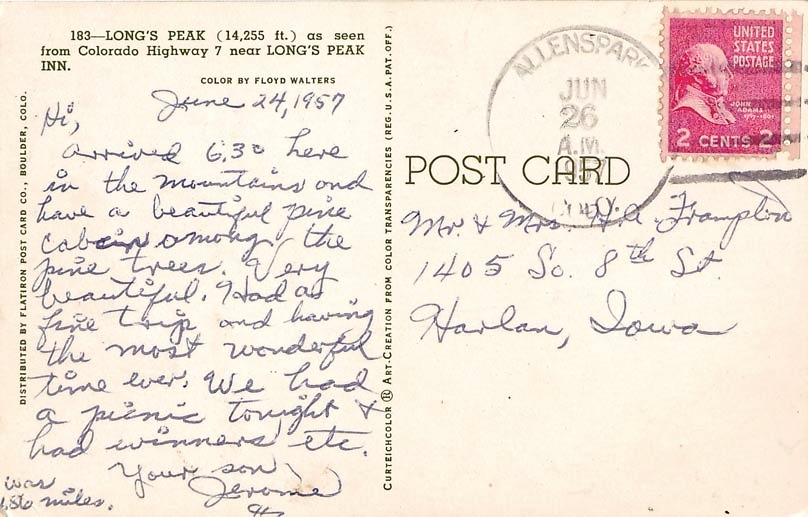 183—LONG'S PEAK (14,255 ft.) as seen
from Colorado Highway 7 near LONG'S PEAK
INN.
COLOR BY FLOYD WALTERS
June 24, 1957
Hi,
Arrived 6:30 here
in the mountains and
have a beautiful pine
cabin among the
pine trees. Very
beautiful. Had a
fine trip and having
the most wonderful
time ever. We had
a picnic tonight &
had winners, etc.
Your son,
Jerome
was
miles.
DISTRIBUTED BY FLATIRON POST CARD CO., BOULDER, COLO.
CURTEICHCOLOR ® ART-CREATION FROM COLOR TRANSPARENCIES (REG. U.S.A. PAT. OFF.)
ALLENSPARK
JUN
26
A.M.
COLO.
UNITED
STATES
POSTAGE
JOHN
ADAMS
2 CENTS 2
POST CARD
Mr. & Mrs. Frampton
1405 So. 8th St.
Harlan, Iowa